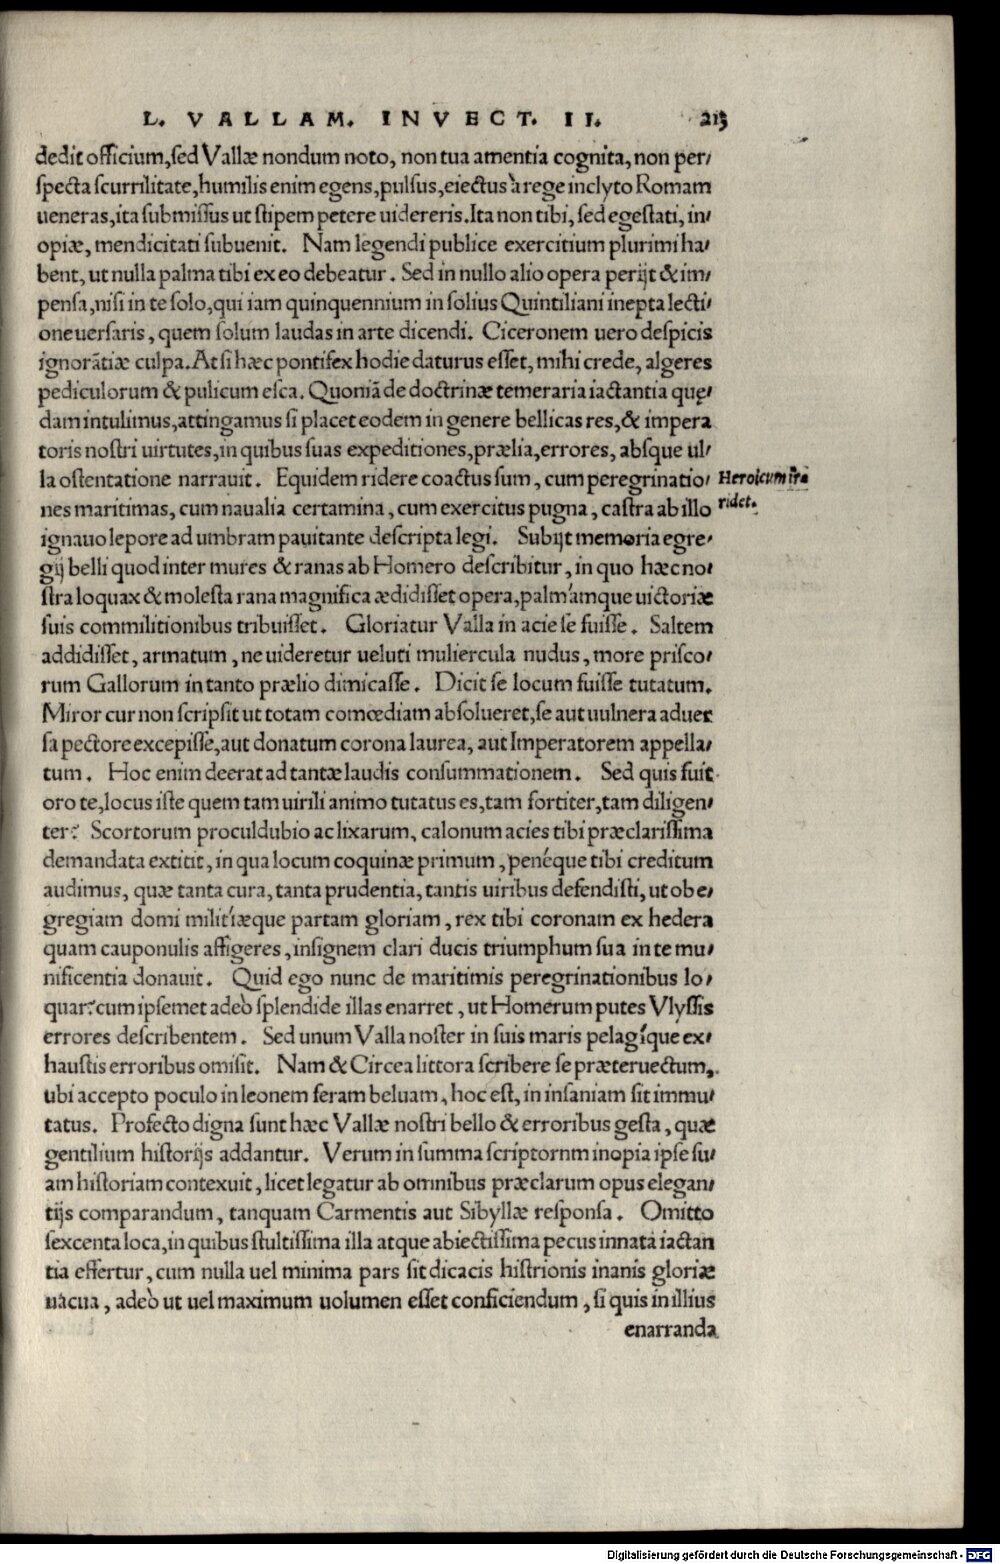 L. VALLAM. INVECT. II. 213
dedit officium, sed Vallæ nondum noto, non tua amentia cognita, non per/
specta scurrilitate, humilis enim egens, pulsus, eiectus à rege inclyto Romam
ueneras, ita submissus ut stipem petere uidereris. Ita non tibi, sed egestati, in/
opiæ, mendicitati subuenit. Nam legendi publice exercitium plurimi ha/
bent, ut nulla palma tibi ex eo debeatur. Sed in nullo alio opera perijt & im/
pensa, nisi in te solo, qui iam quinquennium in solius Quintiliani inepta lecti/
one uersaris, quem solum laudas in arte dicendi. Ciceronem uero despicis
ignorãtiæ culpa. At si hæc pontifex hodie daturus esset, mihi crede, algeres
pediculorum & pulicum esca. Quoniã de doctrinæ temeraria iactantia quę/
dam intulimus, attingamus si placet eodem in genere bellicas res, & impera
toris nostri uirtutes, in quibus suas expeditiones, prælia, errores, absque ul/
la ostentatione narrauit. Equidem ridere coactus sum, cum peregrinatio/
Heroicum
ridet.
nes maritimas, cum naualia certamina, cum exercitus pugna, castra ab illo
ignauo lepore ad umbram pauitante descripta legi. Subijt memoria egre/
gij belli quod inter mures & ranas ab Homero describitur, in quo hæc no/
stra loquax & molesta rana magnifica ædidisset opera, palmámque uictoriæ
suis commilitionibus tribuisset. Gloriatur Valla in acie se fuisse. Saltem
addidisset, armatum, ne uideretur ueluti muliercula nudus, more prisco/
rum Gallorum in tanto prælio dimicasse. Dicit se locum fuisse tutatum.
Miror cur non scripsit ut totam comœdiam absolueret, se aut uulnera aduer
sa pectore excepisse, aut donatum corona laurea, aut Imperatorem appella/
tum. Hoc enim deerat ad tantæ laudis consummationem. Sed quis fuit
oro te, locus iste quem tam uirili animo tutatus es, tam fortiter, tam diligen/
ter? Scortorum proculdubio ac lixarum, calonum acies tibi præclarissima
demandata extitit, in qua locum coquinæ primum, penéque tibi creditum
audimus, quæ tanta cura, tanta prudentia, tantis uiribus defendisti, ut ob e/
gregiam domi militíæque partam gloriam, rex tibi coronam ex hedera
quam cauponulis affigeres, insignem clari ducis triumphum sua in te mu/
nificentia donauit. Quid ego nunc de maritimis peregrinationibus lo/
quar? cum ipsemet adeò splendide illas enarret, ut Homerum putes Vlyssis
errores describentem. Sed unum Valla noster in suis maris pelagíque ex/
haustis erroribus omisit. Nam & Circea littora scribere se præteruectum,
ubi accepto poculo in leonem feram beluam, hoc est, in insaniam sit immu/
tatus. Profecto digna sunt hæc Vallæ nostri bello & erroribus gesta, quæ
gentilium historijs addantur. Verum in summa scriptornm inopia ipse su/
am historiam contexuit, licet legatur ab omnibus præclarum opus elegan/
tijs comparandum, tanquam Carmentis aut Sibyllæ responsa. Omitto
sexcenta loca, in quibus stultissima illa atque abiectissima pecus innata iactan
tia effertur, cum nulla uel minima pars sit dicacis histrionis inanis gloriæ
uacua, adeò ut uel maximum uolumen esset conficiendum, si quis in illius
enarranda
Digitalisierung gefördert durch die Deutsche Forschungsgemeinschaft - DFG